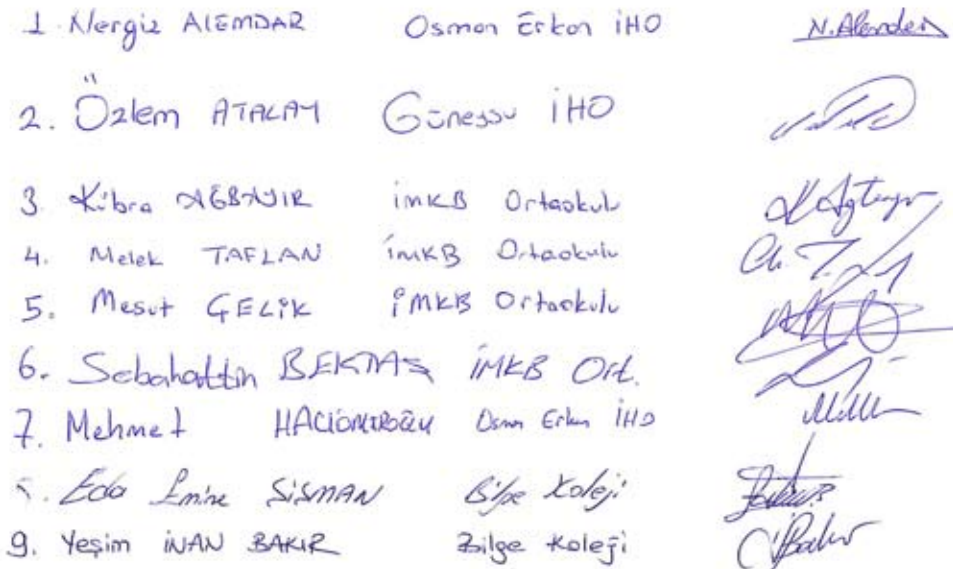 1. Nergiz ALEMDAR Osman Erkan İHO N.Alemdar
2. Özlem ATALAY Güneşsu İHO
3. Kübra AĞBAYIR İMKB Ortaokulu
4. Melek TAFLAN İMKB Ortaokulu
5. Mesut ÇELİK İMKB Ortaokulu
6. Sebahattin BEKTAŞ İMKB Ort.
7. Mehmet HACIÖMEROĞLU Osman Erkan İHO
Eda Emine ŞİŞMAN Bilge Koleji
9. Yeşim İNAN BAKIR Bilge Koleji